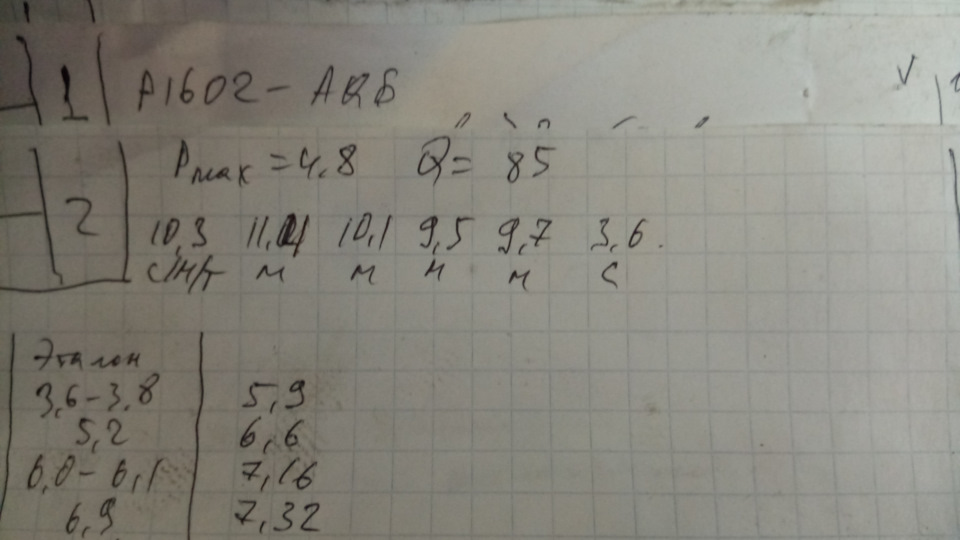 1 P1602 - АКБ V
2 Pmax = 4,8 Q = 85
10,3 11,01 10,1 9,5 9,7 3,6.
м м м м с
Эталон
3,6-3,8 5,9
5,2 6,6
6,0-6,1 7,16
6,9 7,32